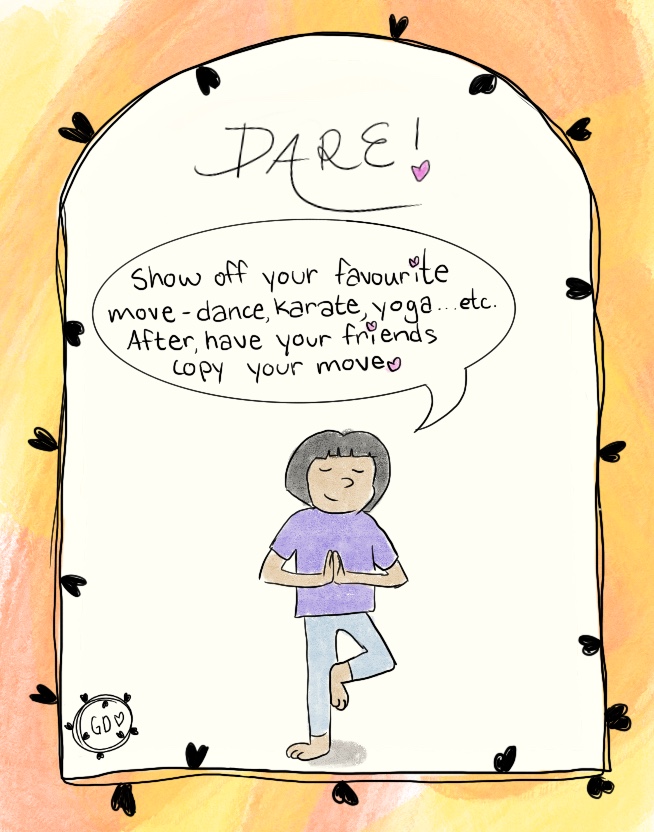 DARE!
Show off your favourite
move - dance, karate, yoga...etc.
After, have your friends
copy your move
GD